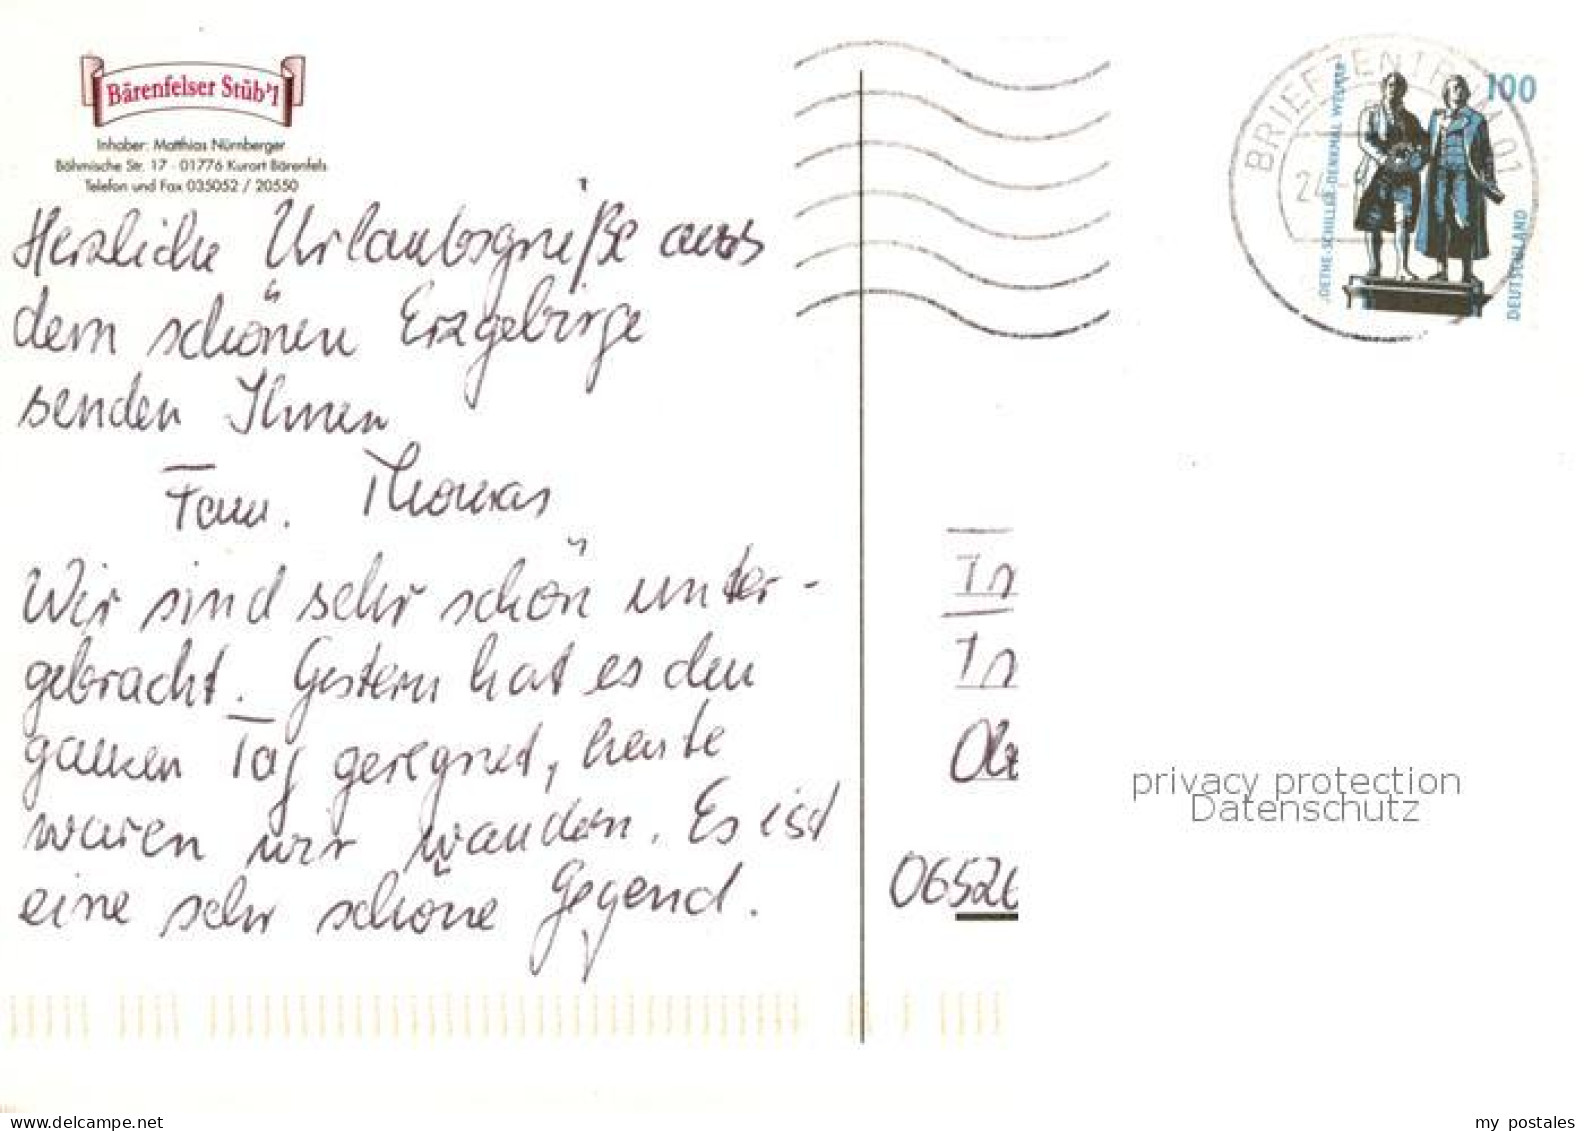 Bärenfelser Stüb'l
Inhaber: Matthias Nürnberger
Böhmische Str. 17 · 01776 Kurort Bärenfels
Telefon und Fax 035052 / 20550
Herzliche Urlaubsgrüße aus
dem schönen Erzgebirge
senden Ihnen
Fam. Thomas
Wir sind sehr schön unter-
gebracht. Gestern hat es den
ganzen Tag geregnet, heute
waren wir wandern. Es ist
eine sehr schöne Gegend.
BRIEFZENTRUM 01
24
GOETHE-SCHILLER-DENKMAL WEIMAR
100
DEUTSCHLAND
0652
privacy protection
Datenschutz
www.delcampe.net
my postales